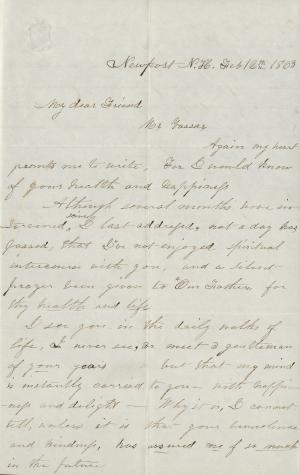 Newport - N.H. Feb 16th 1863
My dear Friend
Mr Vassar
Again my heart
prompts me to write, For I would know
of your health and happiness
Although several months have in-
tervened, since I last addressed, not a day has
passed, that I've not enjoyed spiritual
intercourse with you, and a silent
prayer been given to "Our Father" for
thy health and life
I see you in the daily walks of
life, I never see, or meet a gentleman
of your years but that my mind
is instantly carried to you - with happi-
ness and delight - Why it is, I cannot
tell, unless it is that your benevolence
and kindness, has assured me of so much
in the future